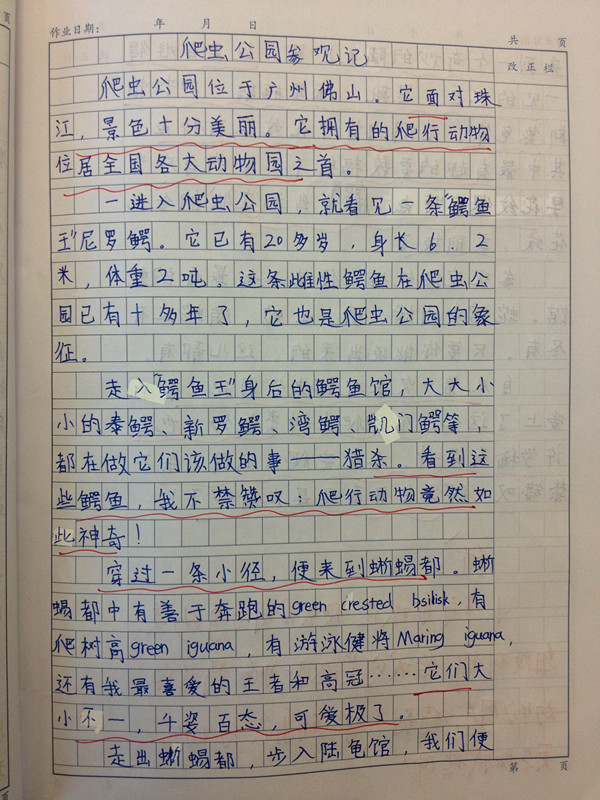 作业日期： 年 月 日 共 页
爬虫公园参观记 改正栏
爬虫公园位于广州佛山。它面对珠
江，景色十分美丽。它拥有的爬行动物
位居全国各大动物园之首。
一进入爬虫公园，就看见一条"鳄鱼
王"尼罗鳄。它已有20多岁，身长6.2
米，体重2吨。这条雌性鳄鱼在爬虫公
园已有十多年了，它也是爬虫公园的象
征。
走入"鳄鱼王"身后的鳄鱼馆，大大小
小的泰鳄、新罗鳄、湾鳄、凯门鳄等，
都在做它们该做的事——猎杀。看到这
些鳄鱼，我不禁赞叹：爬行动物竟然如
此神奇！
穿过一条小径，便来到蜥蜴都。蜥
蜴都中有善于奔跑的green crested bsilisk，有
爬树高green iguana，有游泳健将Maring iguana，
还有我最喜爱的王者和高冠……它们大
小不一，千姿百态，可爱极了。
走出蜥蜴都，步入陆龟馆，我们便
第 页